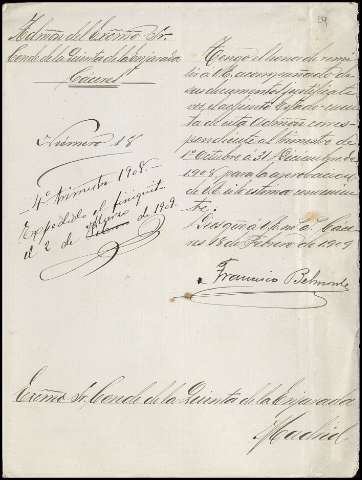 29
Admón del Excmo Sr.
Conde de la Quinta de la Enjarada
Cáceres
Número 18
4º trimestre 1908.
Expedido el finiquito
el 2 de Marzo de 1909
Tengo el honor de remi-
tir á V.E. acompañado de
sus documentos justificati-
vos, el adjunto Estado-cuenta
de esta Admón corres-
pondiente al trimestre de
1º Octubre á 31 Diciembre de
1908 para la aprobacion
de V.E. si la estima convenien-
te.
Dios gûe á V.E. m. a. Cáce-
res 18 de Febrero de 1909
Francisco Belmonte
Excmo Sr. Conde de la Quinta de la Enjarada
Madrid